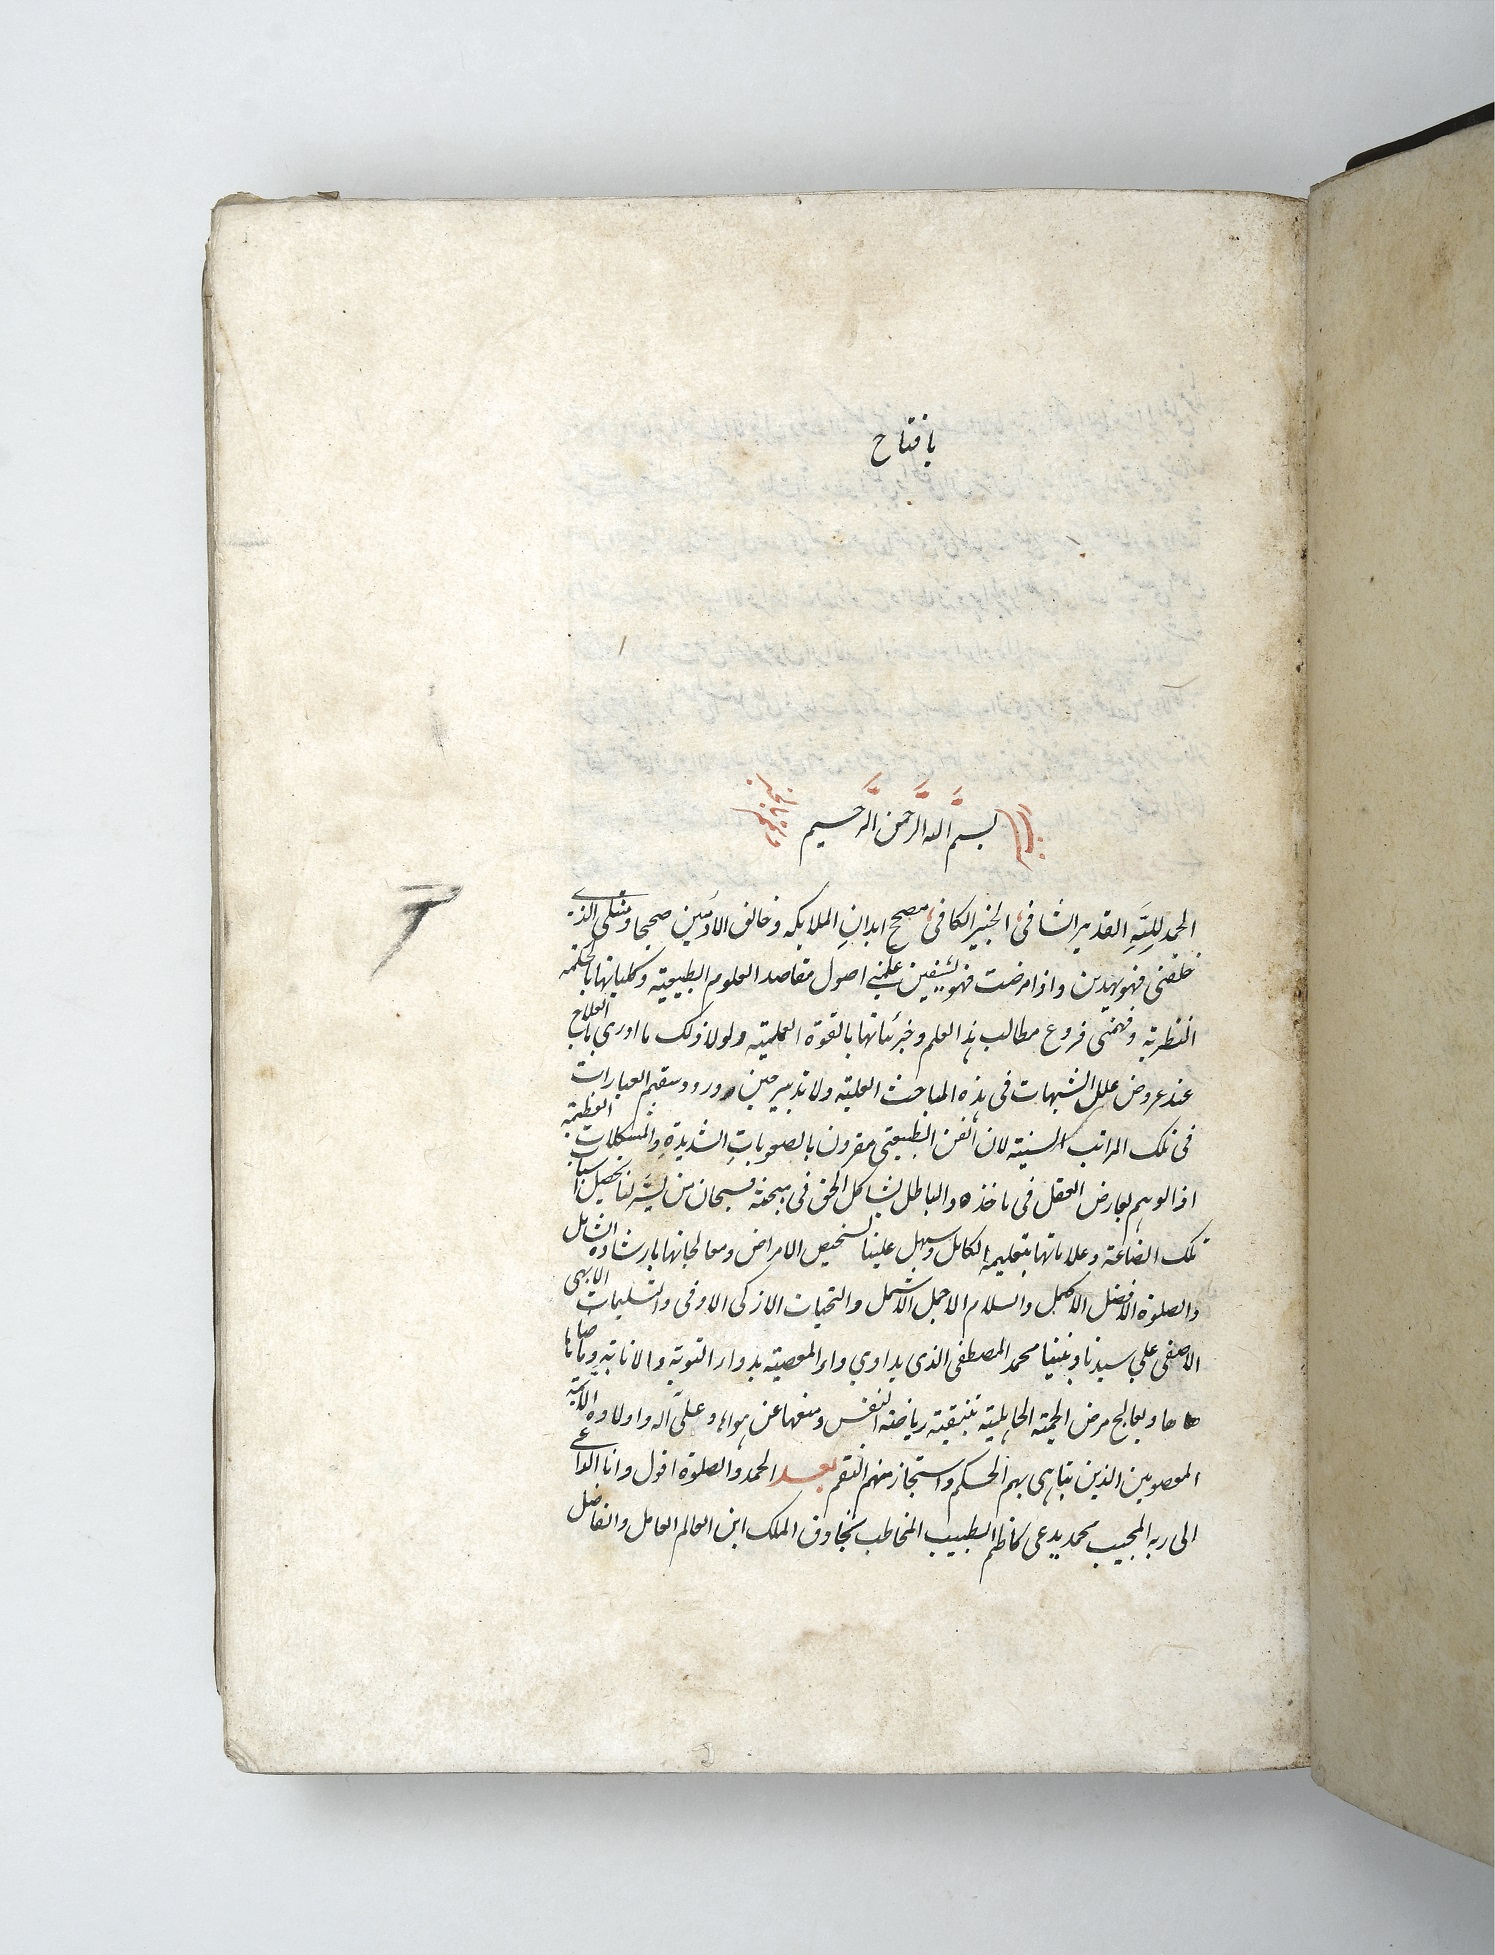 يا فتاح
بسم الله الرحمن الرحيم
الحمد لله القدير الشافى الخبير الكافى مصحح ابدان الملايكه وخالق الادميين صحيحا ومبتلى الذى
خلقنى فهو يهدين واذا مرضت فهو يشفين علمنى اصول مقاصد العلوم الطبيعية وكلياتها بالحكمة
النظرية وفهمنى فروع مطالب هذا العلم وجزئياتها بالقوة العملية ولولا ذلك ما ادرى باب العلاج
عند عروض علل الشبهات فى هذه المباحث العلية ولا تدبير حين ورود سقيم العبارات
فى تلك المراتب السنية لان الفن الطبيعى مقرون بالصعوبات الشديدة والمشكلات العظيمة
اذ الوهم يعارض العقل فى ماخذه والباطل يشاكل الحق فى مبحثه فسبحان من يسر لنا تحصيل اسباب
تلك الصناعة وعلاماتها بتعليمه الكامل وسهل علينا تشخيص الامراض ومعالجاتها بارشاده الشامل
والصلوة الافضل الاكمل والسلام الاجمل الاشمل والتحيات الازكى الاوفى والتسليمات الابهى
الاصفى على سيدنا ونبينا محمد المصطفى الذى يداوي داء المعصية بدواء التوبة والانابة
ها ويعالج مرض الحمية الجاهلية بتنقية رياضة النفس ومنعها عن هواها وعلى آله واولاده الائمة
المعصومين الذين يتباهى بهم الحكم واستجاز منهم النقم بعد الحمد والصلوة اقول وانا الداعى
الى ربه المجيب محمد يدعى كاظم الطبيب المخاطب بحاذق الملك ابن العالم العامل والفاضل